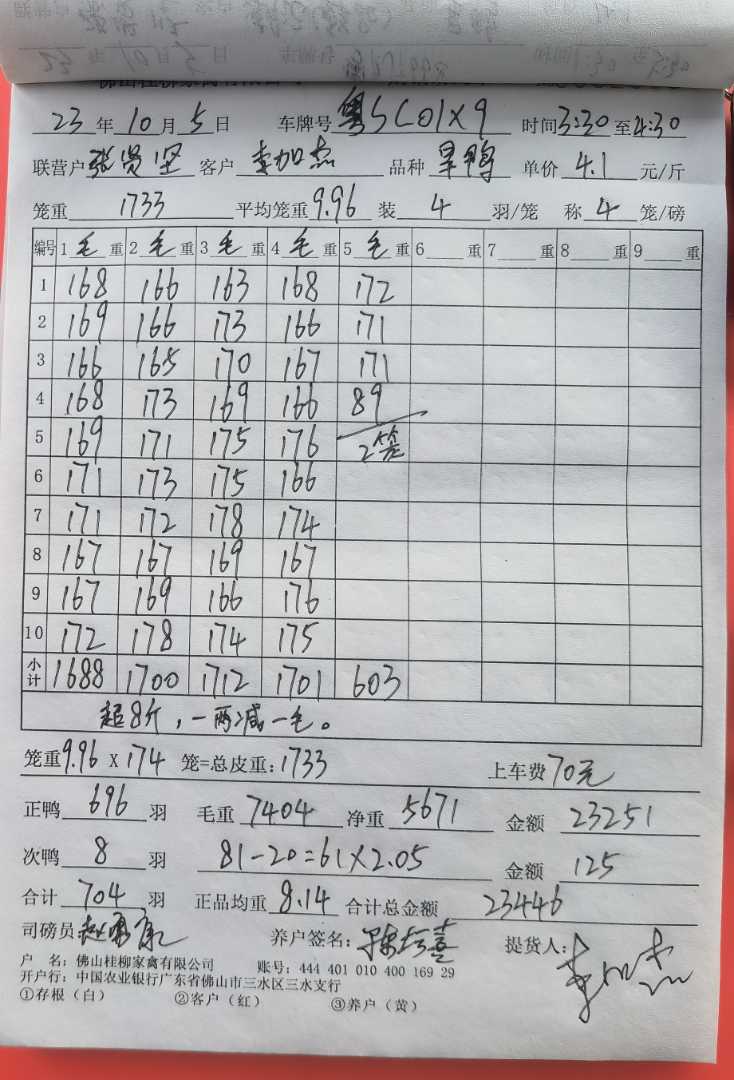 23 年 10 月 5 日 车牌号 粤SC01X9 时间 3:30 至 4:30
联营户 张贤坚 客户 李加杰 品种 旱鸭 单价 4.1 元/斤
笼重 1733 平均笼重 9.96 装 4 羽/笼 称 4 笼/磅
编号 1 毛 重 2 毛 重 3 毛 重 4 毛 重 5 毛 重 6 重 7 重 8 重 9 重
1 168 166 163 168 172
2 169 166 173 166 171
3 166 165 170 167 171
4 168 173 169 166 89
5 169 171 175 176 2笼
6 171 173 175 166
7 171 172 178 174
8 167 167 169 167
9 167 169 166 176
10 172 178 174 175
小计 1688 1700 1712 1701 603
超8斤，一两减一毛。
笼重 9.96 X 174 笼=总皮重: 1733 上车费 70元
正鸭 696 羽 毛重 7404 净重 5671 金额 23251
次鸭 8 羽 81-20=61X2.05 金额 125
合计 704 羽 正品均重 8.14 合计总金额 23446
司磅员 养户签名: 提货人: 李加杰
户 名: 佛山桂柳家禽有限公司 账号: 444 401 010 400 169 29
开户行: 中国农业银行广东省佛山市三水区三水支行
①存根（白） ②客户（红） ③养户（黄）